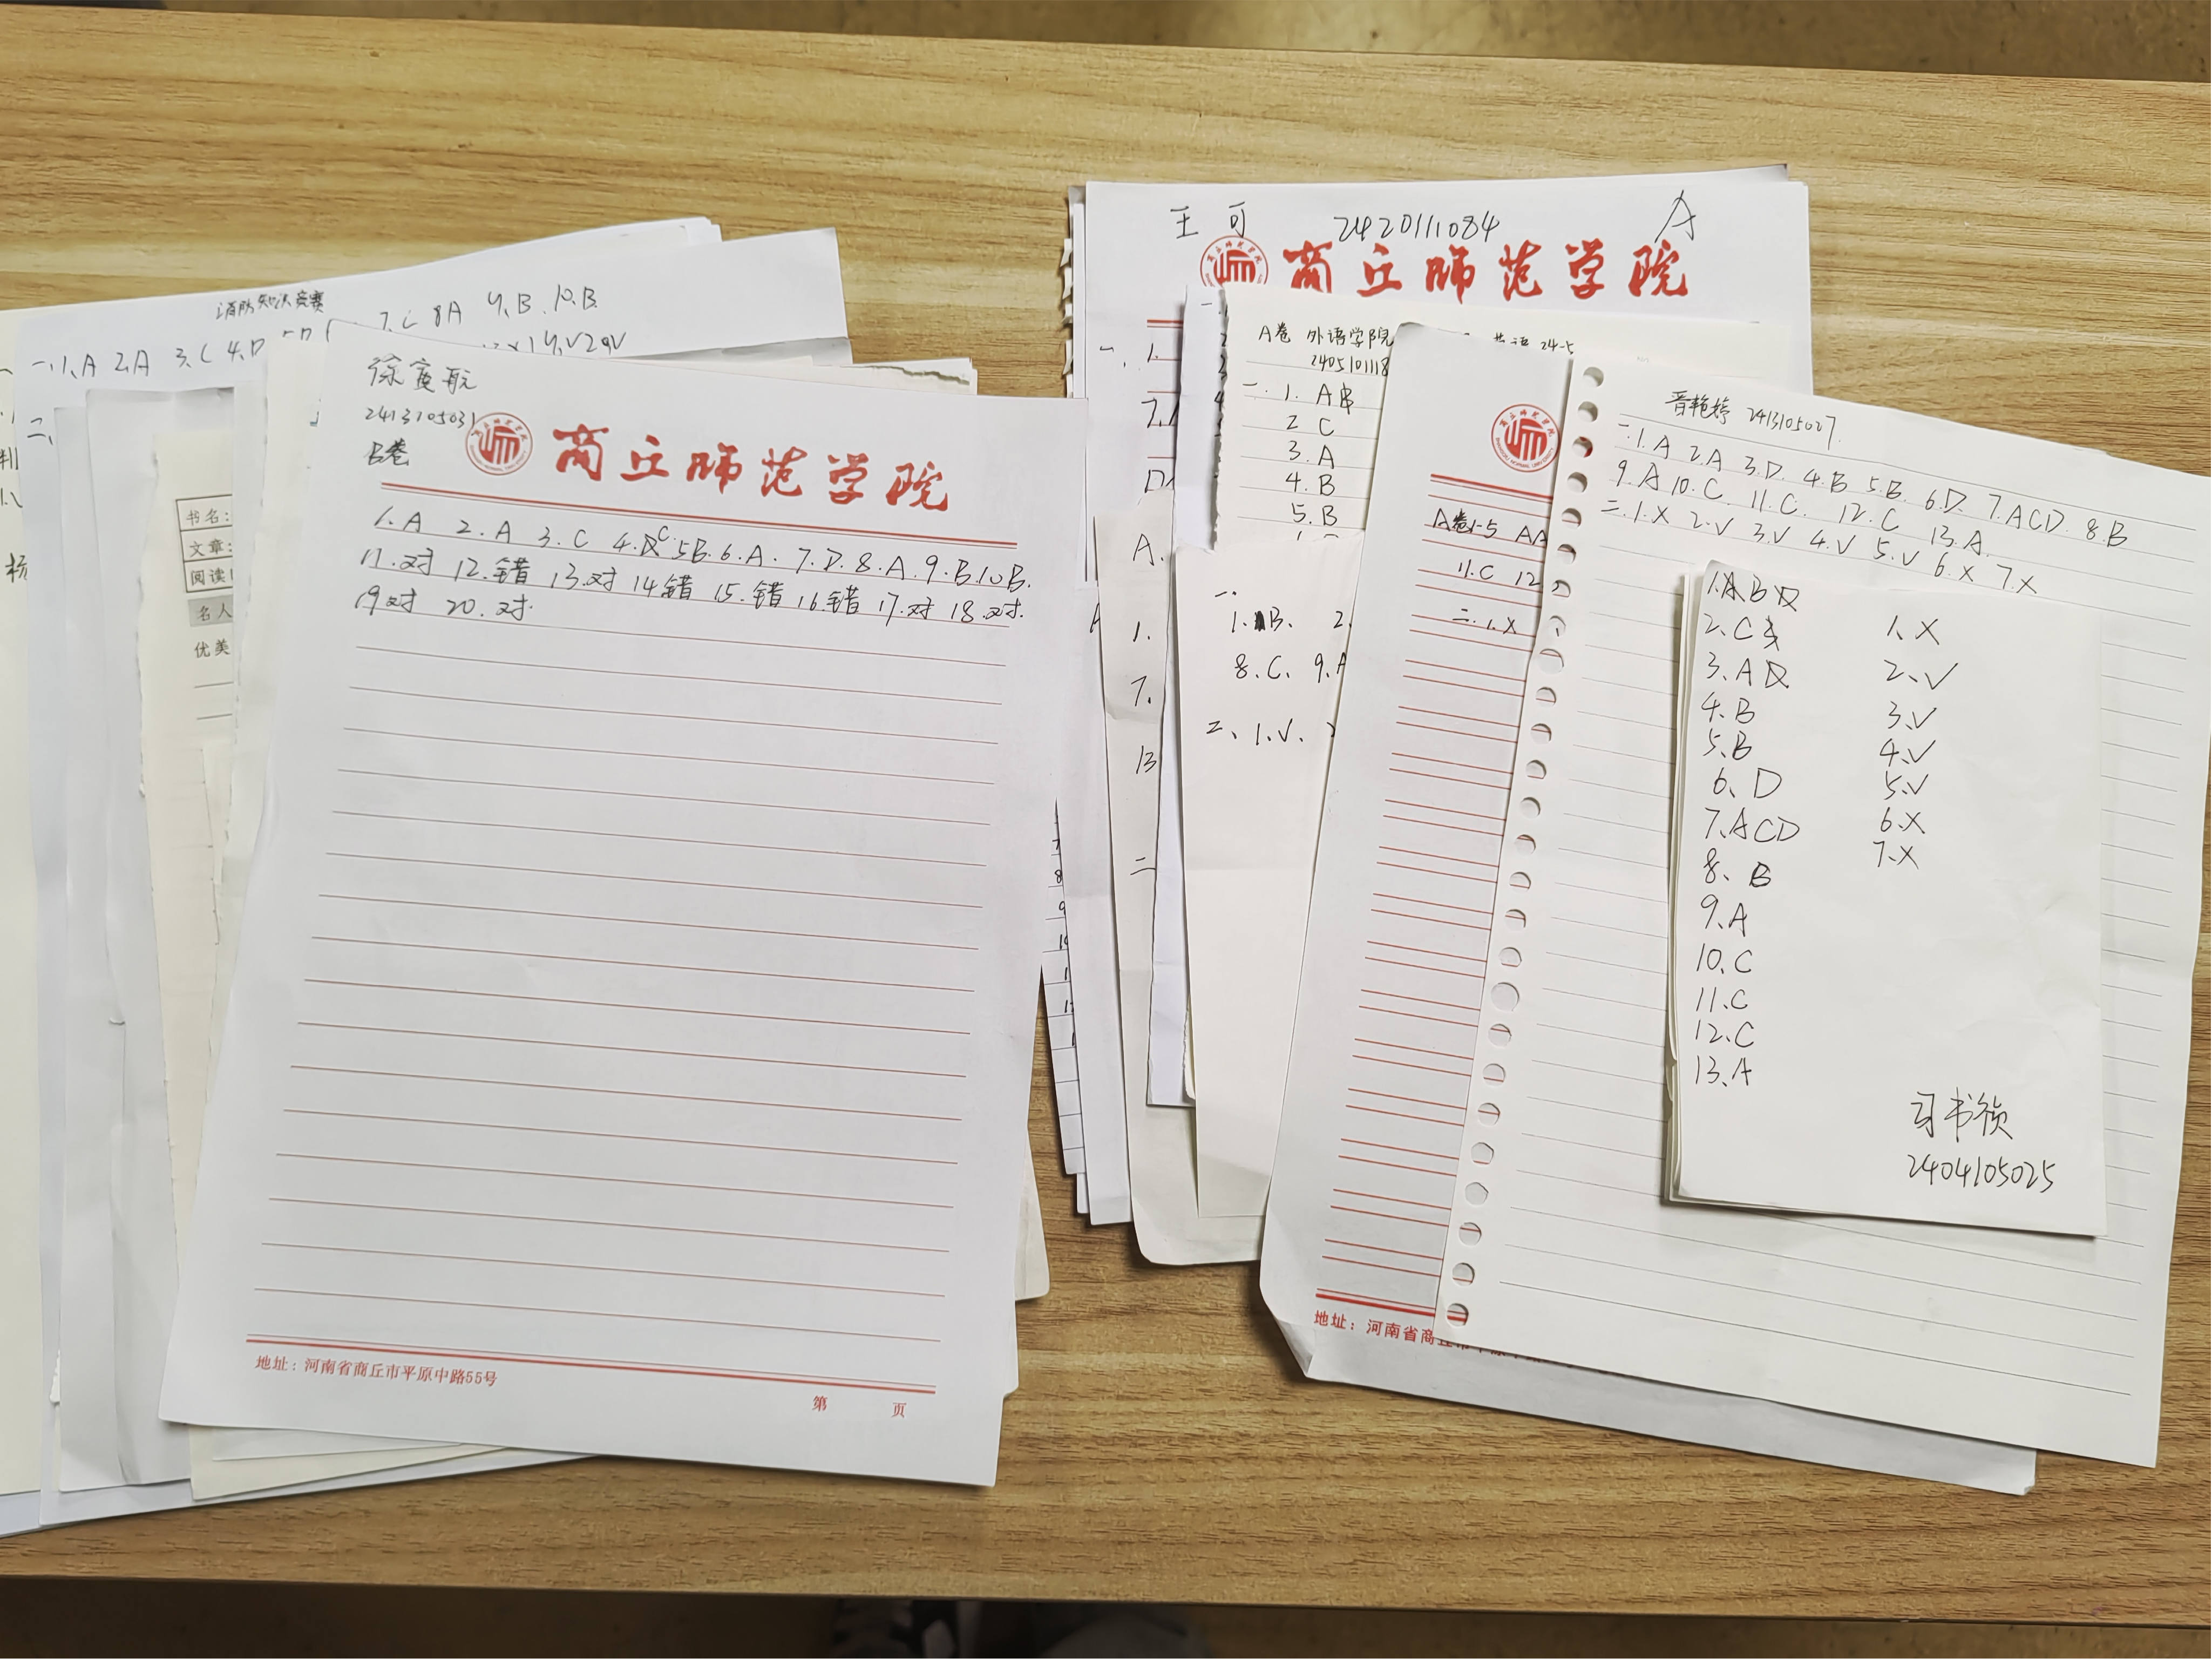 消防知识竞赛
一、1、A 2、A 3、C 4、D
7、C 8A 9、B、10、B
二、
书名：
文章：
阅读
名人
优美
徐寅航
2413105031
B卷
商丘师范学院
1.A 2.A 3.C 4.C 5B. 6.A. 7.D. 8.A. 9.B. 10B.
11.对 12.错 13.对 14.错 15.错 16.错 17.对 18.对.
19对 20.对.
地址：河南省商丘市平原中路55号
第 页
王可 2420111084 A
商丘师范学院
一、1.
7.
A.
1.
7.
13
二
A卷 外语学院 英语 24-5
2405101118
一. 1. AB
2 C
3. A
4. B
5. B
一.
1. B、 2.
8.C、 9.A
二、1.√、
A卷1-5 AA
11.C 12
二.1.X
地址：河南省商丘市
晋艳婷 2413105027.
一.1.A 2.A 3.D. 4.B 5.B. 6.D. 7.ACD. 8.B
9.A 10.C. 11.C. 12.C 13.A.
二.1.X 2.√ 3.√ 4.√ 5.√ 6.X 7.X
1.AB
2、C
3、A
4、B
5、B
6、D
7、ACD
8、B
9、A
10、C
11、C
12、C
13、A
1、X
2、√
3、√
4、√
5、√
6、X
7、X
司书颀
2404105025